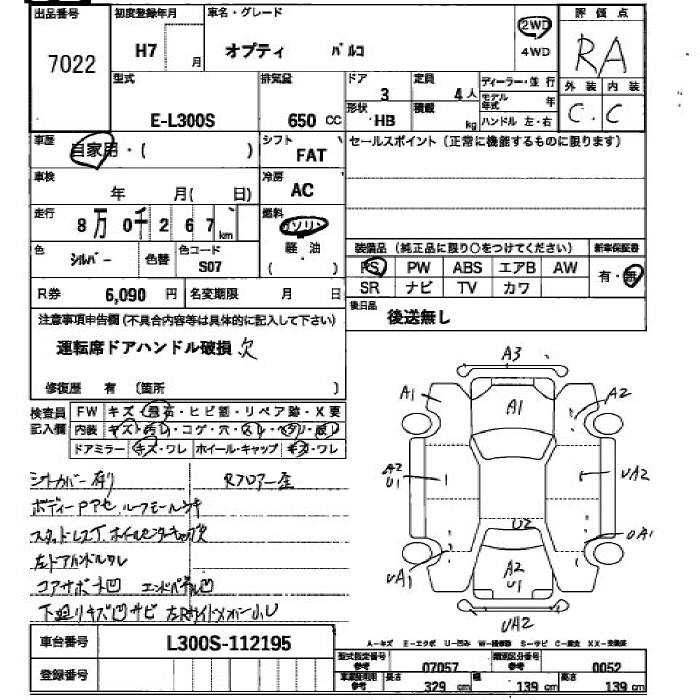 出品番号 初度登録年月 車名・グレード 評価点
7022 H7 月 オプティ パルコ 2WD 4WD RA
型式 排気量 ドア 定員 ディーラー・並行 外装 内装
E-L300S 650 CC 3 4人 モデル年式 年 C C
形状 HB 積載 kg ハンドル 左・右
車歴 自家用・( ) シフト FAT セールスポイント(正常に機能するものに限ります)
車検 年 月( 日) 冷房 AC
走行 8万0千267km 燃料 ガソリン
軽・油
( ・ )
色 シルバー 色替 色コード S07 装備品(純正品に限り○をつけてください) 新車保証書
PS PW ABS エアB AW 有・無
SR ナビ TV カワ
R券 6,090円 名変期限 月 日 後日品 後送無し
注意事項申告欄(不具合内容等は具体的に記入して下さい)
運転席ドアハンドル破損 欠
修復歴 有 (箇所 )
検査員記入欄 FW キズ・飛石・ヒビ割・リペア跡・X要
内装 キズ・汚レ・コゲ・穴・スレ・ヘタリ・破レ
ドアミラー キズ・ワレ ホイール・キャップ キズ・ワレ
シートカバー有り Rフロアー歪
ボディーPアセ ルーフモールウキ
スタッドレスT ホイールセンターキャップ欠
左ドアハンドルワレ
コアサポート凹 エンドパネル凹
下廻りキズ凹サビ
A3
A1 A1 A2
A2 U1 UA2
U2 UA1
UA1 A2 U1
UA2
車台番号 L300S-112195
A-キズ E-エクボ U-凹み W-補修跡 S-サビ C-腐食 XX-交換済
登録番号 型式指定番号 参考 07057 類別区分番号 参考 0052
車庫証明用 参考 長さ 329 cm 幅 139 cm 高さ 139 cm